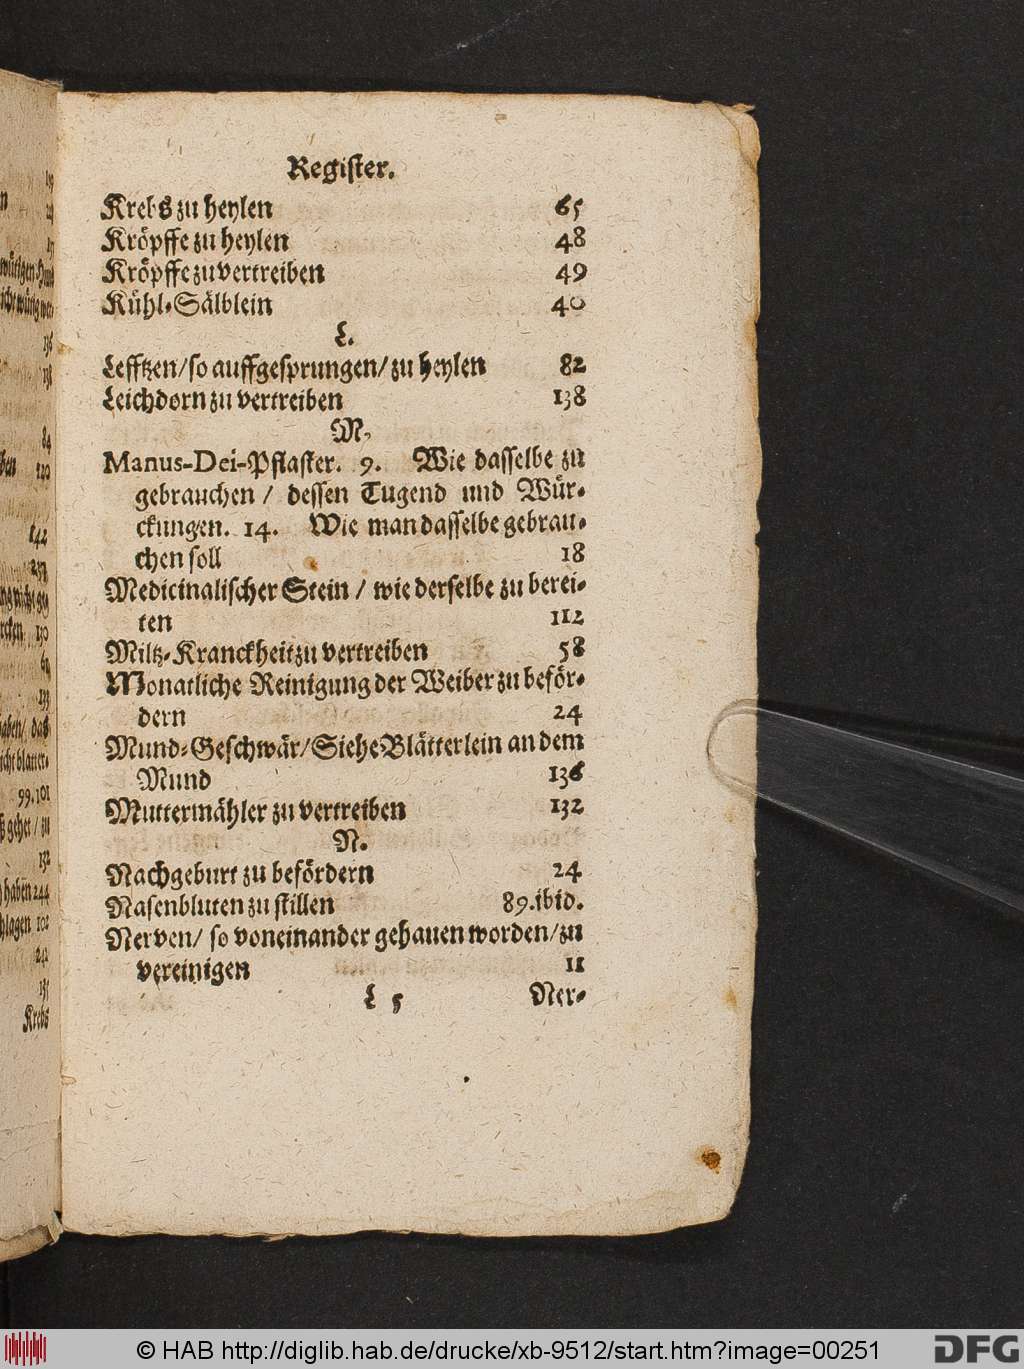 Register.
Krebs zu heylen 65
Kröpffe zu heylen 48
Kröpffe zu vertreiben 49
Kühl-Sälblein 40
L.
Lefftzen/ so auffgesprungen/ zu heylen 82
Leichdorn zu vertreiben 138
M.
Manus-Dei-Pflaster. 9. Wie dasselbe zu
gebrauchen / dessen Tugend und Wür-
ckungen. 14. Wie man dasselbe gebrau-
chen soll 18
Medicinalischer Stein / wie derselbe zu berei-
ten 112
Miltz-Kranckheit zu vertreiben 58
Monatliche Reinigung der Weiber zu beför-
dern 24
Mund-Geschwär/ Siehe Blätterlein an dem
Mund 136
Muttermähler zu vertreiben 132
N.
Nachgeburt zu befördern 24
Nasenbluten zu stillen 89. ibid.
Nerven/ so voneinander gehauen worden/ zu
vereinigen 11
L 5 Ner-
136
84
142
99.101
132
haben 244
schlagen 102
Krebs
© HAB http://diglib.hab.de/drucke/xb-9512/start.htm?image=00251
DFG